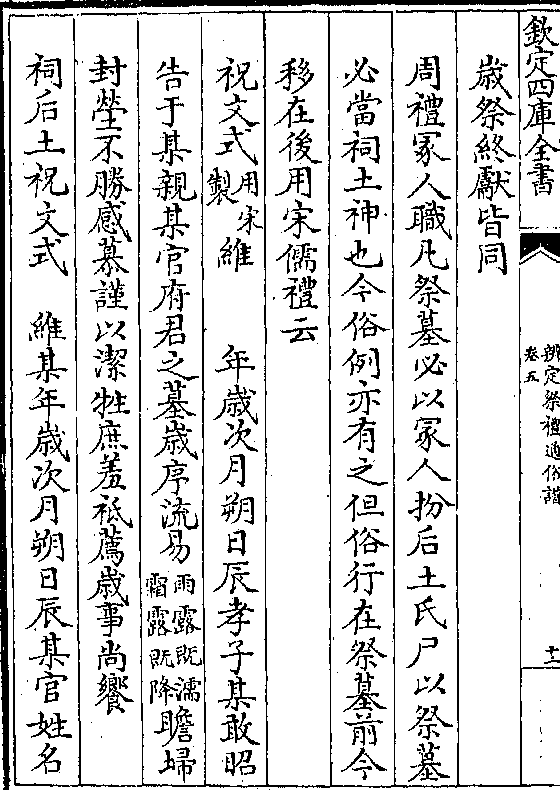 欽定四庫全書
辨定祭禮通俗譜
卷五
十一
歲祭終獻皆同
周禮冢人職凡祭墓必以冢人扮后土氏尸以祭墓
必當祠土神也今俗例亦有之但俗行在祭墓前今
移在後用宋儒禮云
祝文式用宋製維　年歲次月朔日辰孝子某敢昭
告于某親某官府君之墓歲序流易雨露既濡霜露既降瞻埽
封塋不勝感慕謹以潔牲庶羞祇薦歲事尚饗
祠后土祝文式　維某年歲次月朔日辰某官姓名